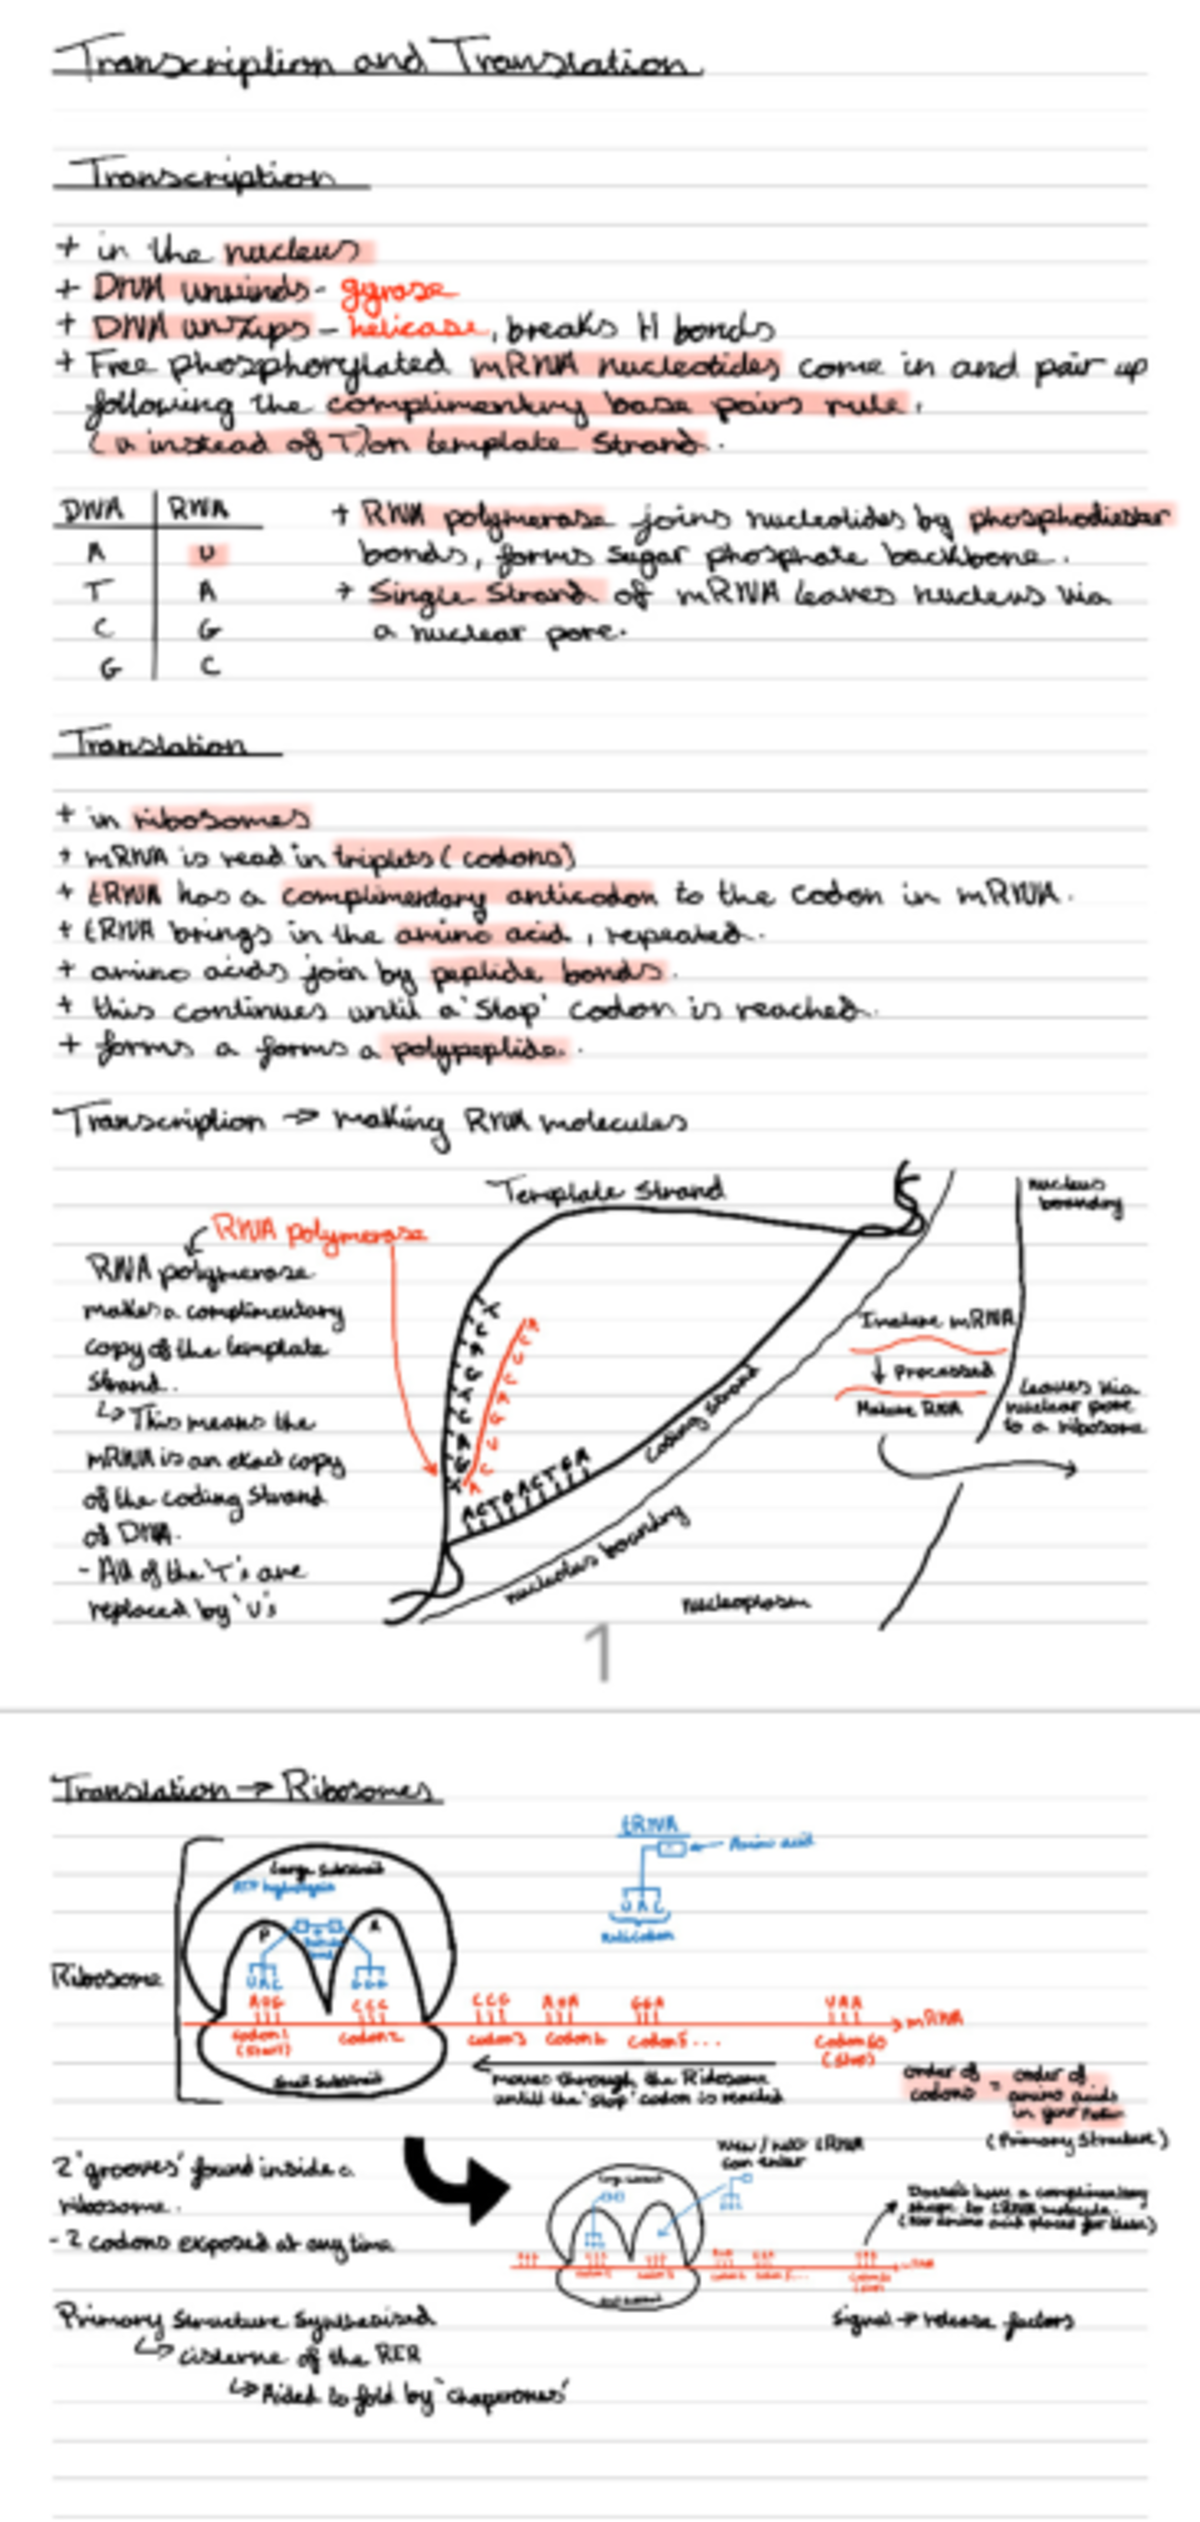 Transcription and Translation
Transcription
+ in the nucleus
+ DNA unwinds - gyrase
+ DNA unzips - helicase, breaks H bonds
+ Free phosphorylated mRNA nucleotides come in and pair up
following the complimentary base pairs rule,
(u instead of T) on template strand.
DNA RNA
A U
T A
C G
G C
+ RNA polymerase joins nucleotides by phosphodiester
bonds, forms sugar phosphate backbone.
+ Single strand of mRNA leaves nucleus via
a nuclear pore.
Translation
+ in ribosomes
+ mRNA is read in triplets (codons)
+ tRNA has a complimentary anticodon to the codon in mRNA.
+ tRNA brings in the amino acid, repeated.
+ amino acids join by peptide bonds.
+ this continues until a 'stop' codon is reached.
+ forms a forms a polypeptide.
Transcription → making RNA molecules
Template strand
RNA polymerase
RNA polymerase
makes a complimentary
copy of the template
strand.
↳ This means the
mRNA is an exact copy
of the coding strand
of DNA.
- All of the 'T's are
replaced by 'U's
ACTGACTGA
coding strand
nucleolus boundry
nucleoplasm
nucleus
boundry
mRNA
↓ Processed
Mature RNA
Leaves via
nuclear pore
to a ribosome
1
Translation → Ribosomes
Ribosome
Large subunit
ATP hydrolysis
P
A
UAC
GGG
AUG
CCC
codon 1
(start)
codon 2
small subunit
tRNA
Amino acid
UAC
anticodon
CCG
codon 3
AGA
GGA
codon 5...
UAA
codon 60
(stop)
mRNA
moves through the Ribosome
untill the 'stop' codon is reached
order of
codons = order of
amino acids
in your
(Primary Structure)
2 'grooves' found inside a
ribosome.
- 2 codons exposed at any time
tRNA
can enter
Doesn't have a complimentary
shape to tRNA molecule.
Signal → release factors
Primary Structure Synthesised
↳ cisternae of the RER
↳ Aided to fold by 'chaperones'